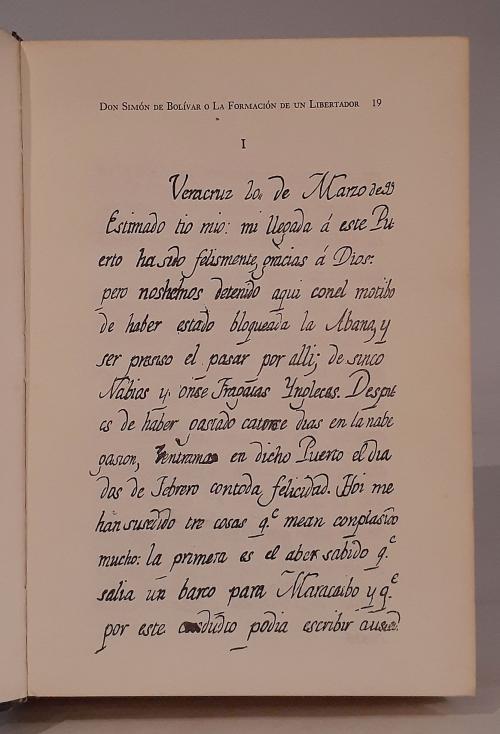 DON SIMÓN DE BOLÍVAR O LA FORMACIÓN DE UN LIBERTADOR 19
I
Veracruz 20,, de Marzo de 99
Estimado tio mio: mi llegada á este Pu
erto ha sido felismente, gracias á Dios:
pero nos hemos detenido aqui con el motibo
de haber estado bloqueada la Abana, y
ser presiso el pasar por alli; de sinco
Nabios y onse Fragatas Ynglecas. Despu
es de haber gastado catorse dias en la nabe
gasion, entramos en dicho Puerto el dia
dos de Febrero con toda felicidad. Hoi me
han susedido tre cosas q.e me an conplasido
mucho: la primera es el aber sabido q.e
salia un barco para Maracaibo y q.e
por este podia escribir a usted.